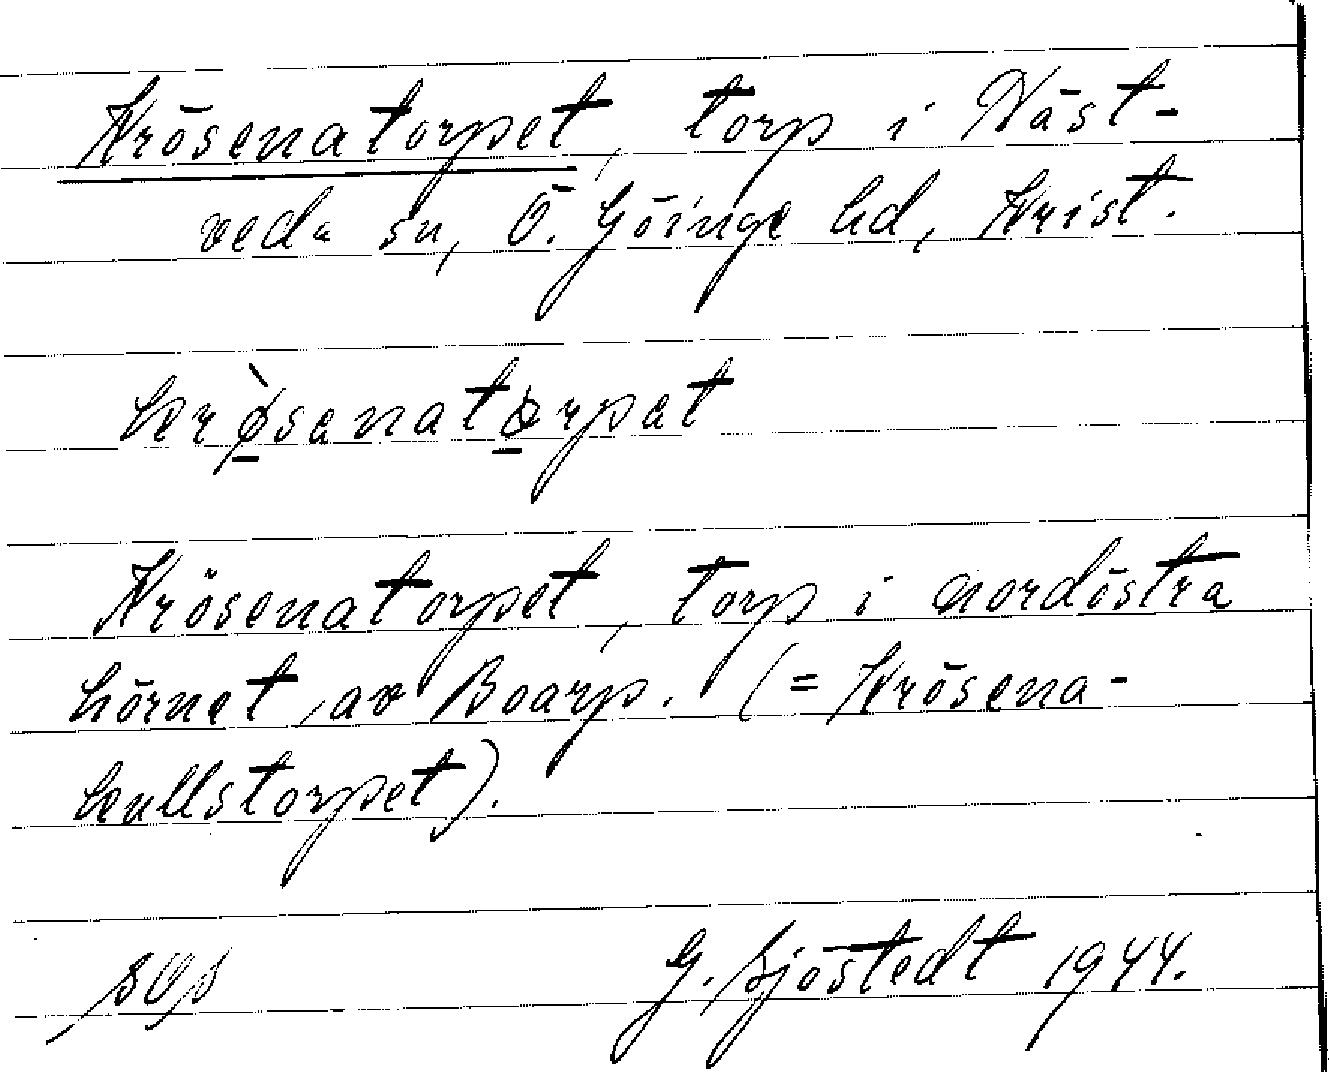 Krösenatorpet, torp i Näst-
veda sn, Ö. Göinge hd, Krist.
krø̀sanatorpat
Krösenatorpet, torp i nordöstra
hörnet av Boarp. (= Krösena-
kullstorpet).
G. Sjöstedt 1944.